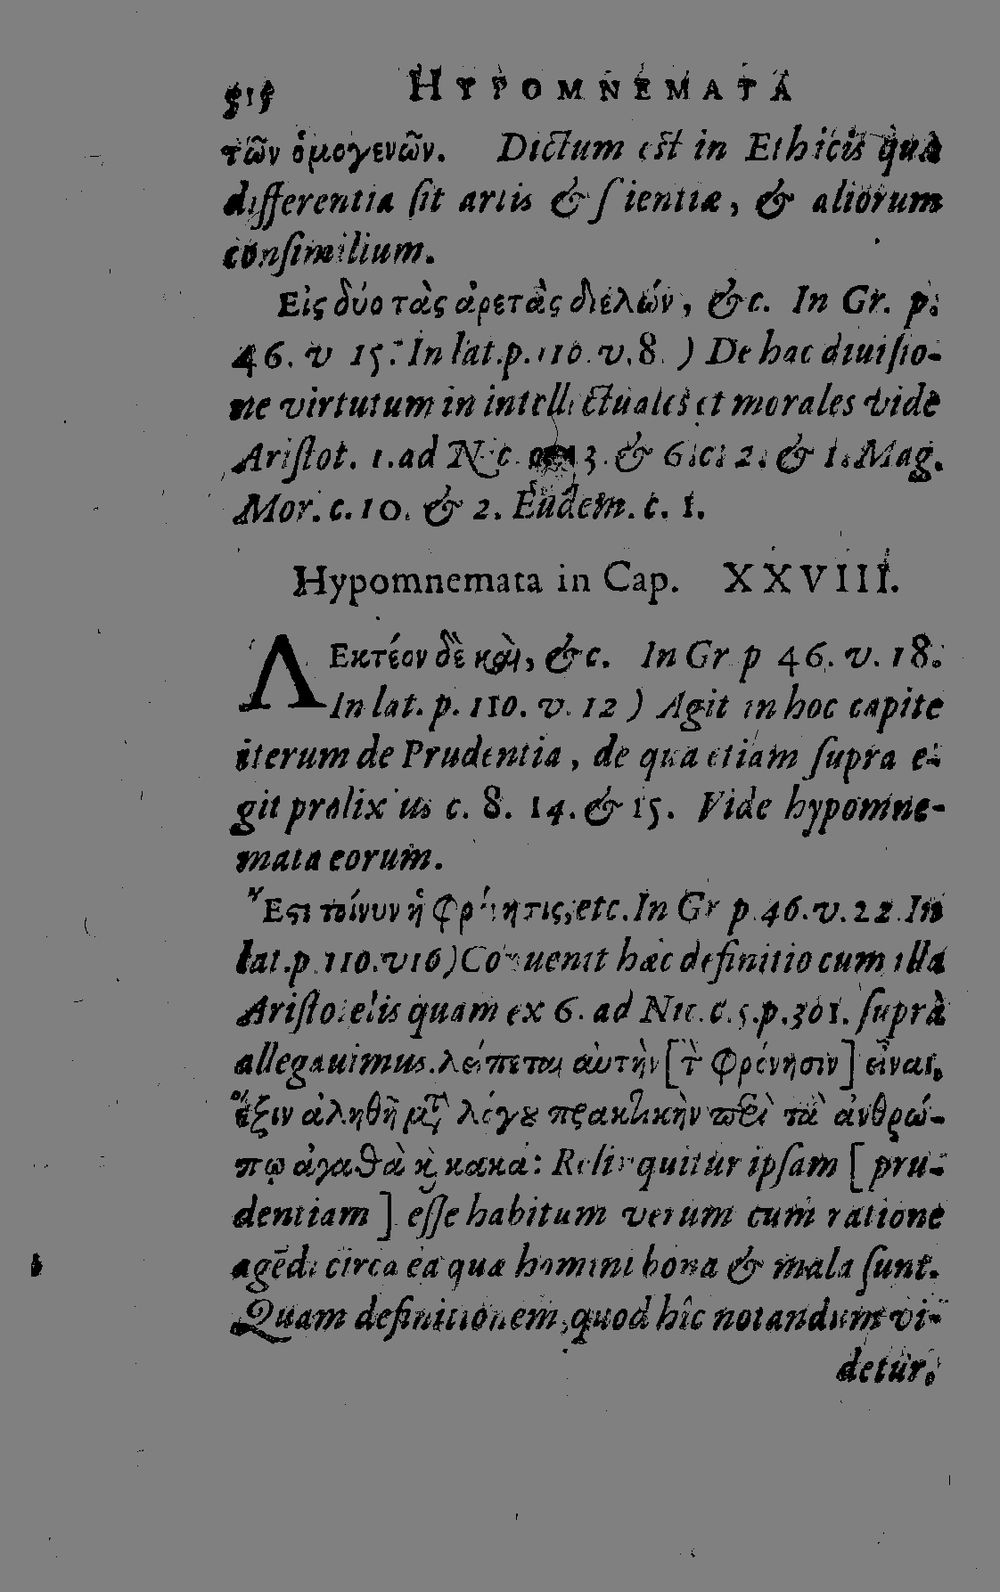 HYPOMNEMATA
τῶν ὁμογενῶν. Dictum est in Ethicis qua
differentia sit artis & scientiæ, & aliorum
consimilium.
Εἰς δύο τὰς ἀρετὰς διελών, &c. In Gr. p.
46. v 15. In lat. p. 110. v. 8. ) De hac diuisio-
ne virtutum in intellectuales et morales vide
Aristot. 1. ad Nic. 13. & 6. c. 2. & 1. Mag.
Mor. c. 10. & 2. Eudem. c. 1.
Hypomnemata in Cap. XXVIII.
ΛΕκτέον δὲ καὶ, &c. In Gr p 46. v. 18.
In lat. p. 110. v. 12 ) Agit in hoc capite
iterum de Prudentia, de qua etiam supra e-
git prolixius c. 8. 14. & 15. Vide hypomne-
mata eorum.
Ἔστι τοίνυν ἡ φρόνησις, etc. In Gr p. 46. v. 22. In
lat. p. 110. v 16) Conuenit hæc definitio cum illa
Aristotelis quam ex 6. ad Nic. c. 5. p. 301. suprà
allegauimus. λείπεται αὐτὴν [τ̀ φρόνησιν] εἶναι,
ἕξιν ἀληθῆ μτ̃ λόγου πρακτικὴν περὶ τὰ ἀνθρώ-
πῳ ἀγαθὰ κ̀ κακά: Relinquitur ipsam [ pru-
dentiam ] esse habitum verum cum ratione
agēdi circa ea quæ homini bona & mala sunt.
Quam definitionem, quod hîc notandum vi-
detur.